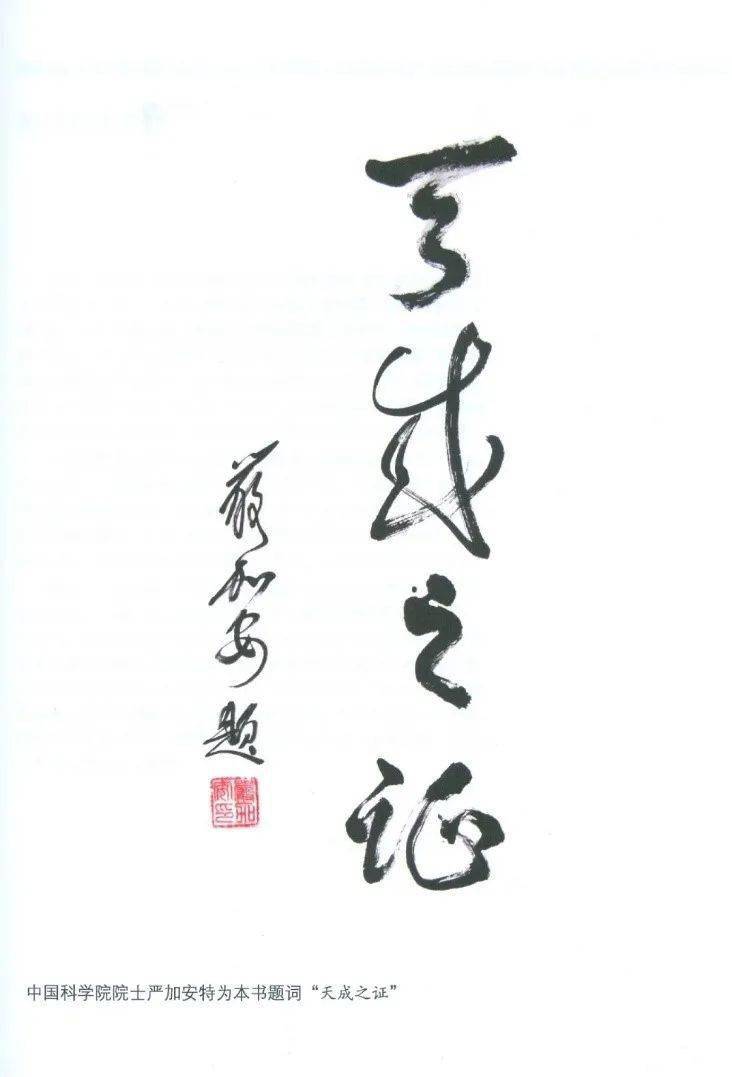 天成之证
严加安题
中国科学院院士严加安特为本书题词“天成之证”